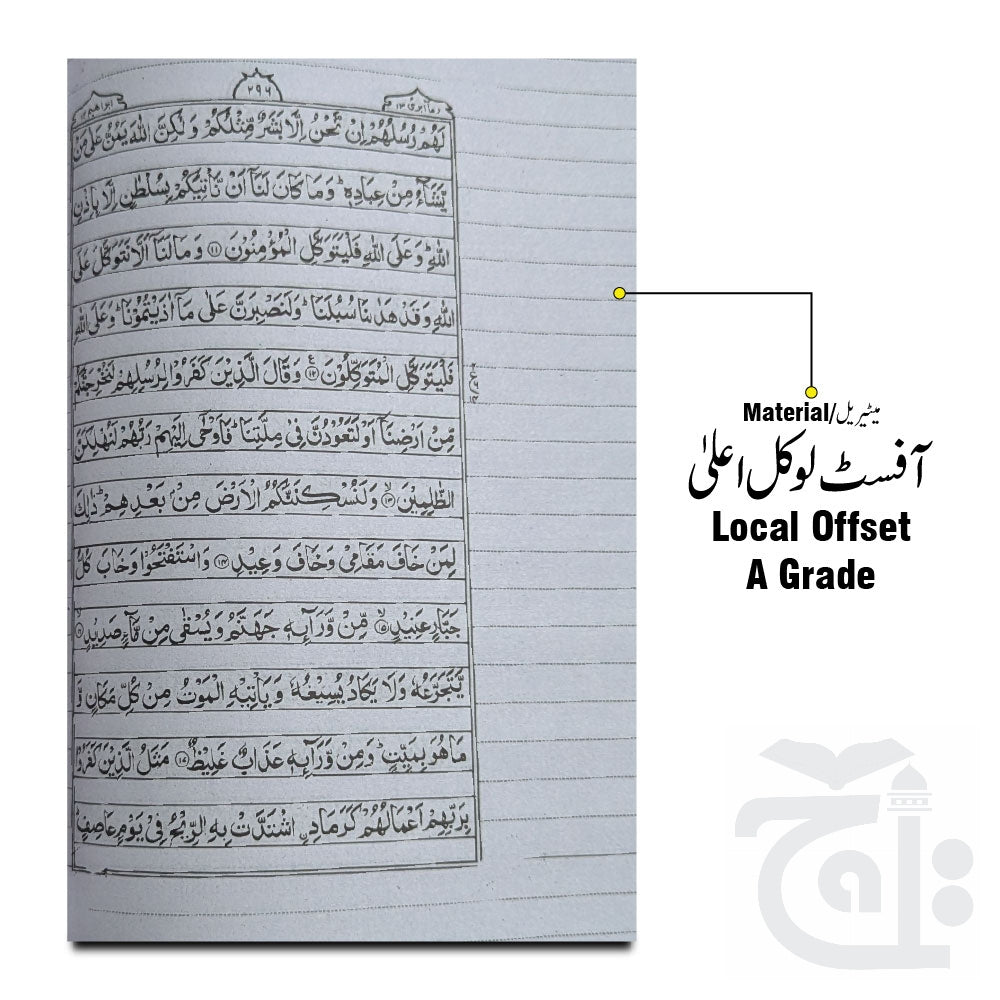 ابراهيم ١٤
٢٩٦
وما ابرئ ١٣
لَهُمْ رُسُلُهُمْ اِنْ نَّحْنُ اِلَّا بَشَرٌ مِّثْلُكُمْ وَ لٰكِنَّ اللّٰهَ يَمُنُّ عَلٰى مَنْ
يَّشَآءُ مِنْ عِبَادِهٖ ؕ وَ مَا كَانَ لَنَاۤ اَنْ نَّاْتِيَكُمْ بِسُلْطٰنٍ اِلَّا بِاِذْنِ
اللّٰهِ ؕ وَ عَلَى اللّٰهِ فَلْيَتَوَكَّلِ الْمُؤْمِنُوْنَ ﴿۱۱﴾ وَ مَا لَنَاۤ اَلَّا نَتَوَكَّلَ عَلَى
اللّٰهِ وَ قَدْ هَدٰىنَا سُبُلَنَا ؕ وَ لَنَصْبِرَنَّ عَلٰى مَاۤ اٰذَيْتُمُوْنَا ؕ وَ عَلَى اللّٰهِ
فَلْيَتَوَكَّلِ الْمُتَوَكِّلُوْنَ ﴿۱۲﴾ وَ قَالَ الَّذِيْنَ كَفَرُوْا لِرُسُلِهِمْ لَنُخْرِجَنَّكُمْ
مِّنْ اَرْضِنَاۤ اَوْ لَتَعُوْدُنَّ فِيْ مِلَّتِنَا ؕ فَاَوْحٰۤى اِلَيْهِمْ رَبُّهُمْ لَنُهْلِكَنَّ
الظّٰلِمِيْنَ ﴿۱۳﴾ وَ لَنُسْكِنَنَّكُمُ الْاَرْضَ مِنْۢ بَعْدِهِمْ ؕ ذٰلِكَ
لِمَنْ خَافَ مَقَامِيْ وَ خَافَ وَعِيْدِ ﴿۱۴﴾ وَ اسْتَفْتَحُوْا وَ خَابَ كُلُّ
جَبَّارٍ عَنِيْدٍ ﴿۱۵﴾ مِّنْ وَّرَآئِهٖ جَهَنَّمُ وَ يُسْقٰى مِنْ مَّآءٍ صَدِيْدٍ ﴿۱۶﴾
يَّتَجَرَّعُهٗ وَ لَا يَكَادُ يُسِيْغُهٗ وَ يَاْتِيْهِ الْمَوْتُ مِنْ كُلِّ مَكَانٍ وَّ
مَا هُوَ بِمَيِّتٍ ؕ وَ مِنْ وَّرَآئِهٖ عَذَابٌ غَلِيْظٌ ﴿۱۷﴾ مَثَلُ الَّذِيْنَ كَفَرُوْا
بِرَبِّهِمْ اَعْمَالُهُمْ كَرَمَادِ ِ۟اشْتَدَّتْ بِهِ الرِّيْحُ فِيْ يَوْمٍ عَاصِفٍ
Material/میٹیریل
آفسٹ لوکل اعلیٰ
Local Offset
A Grade